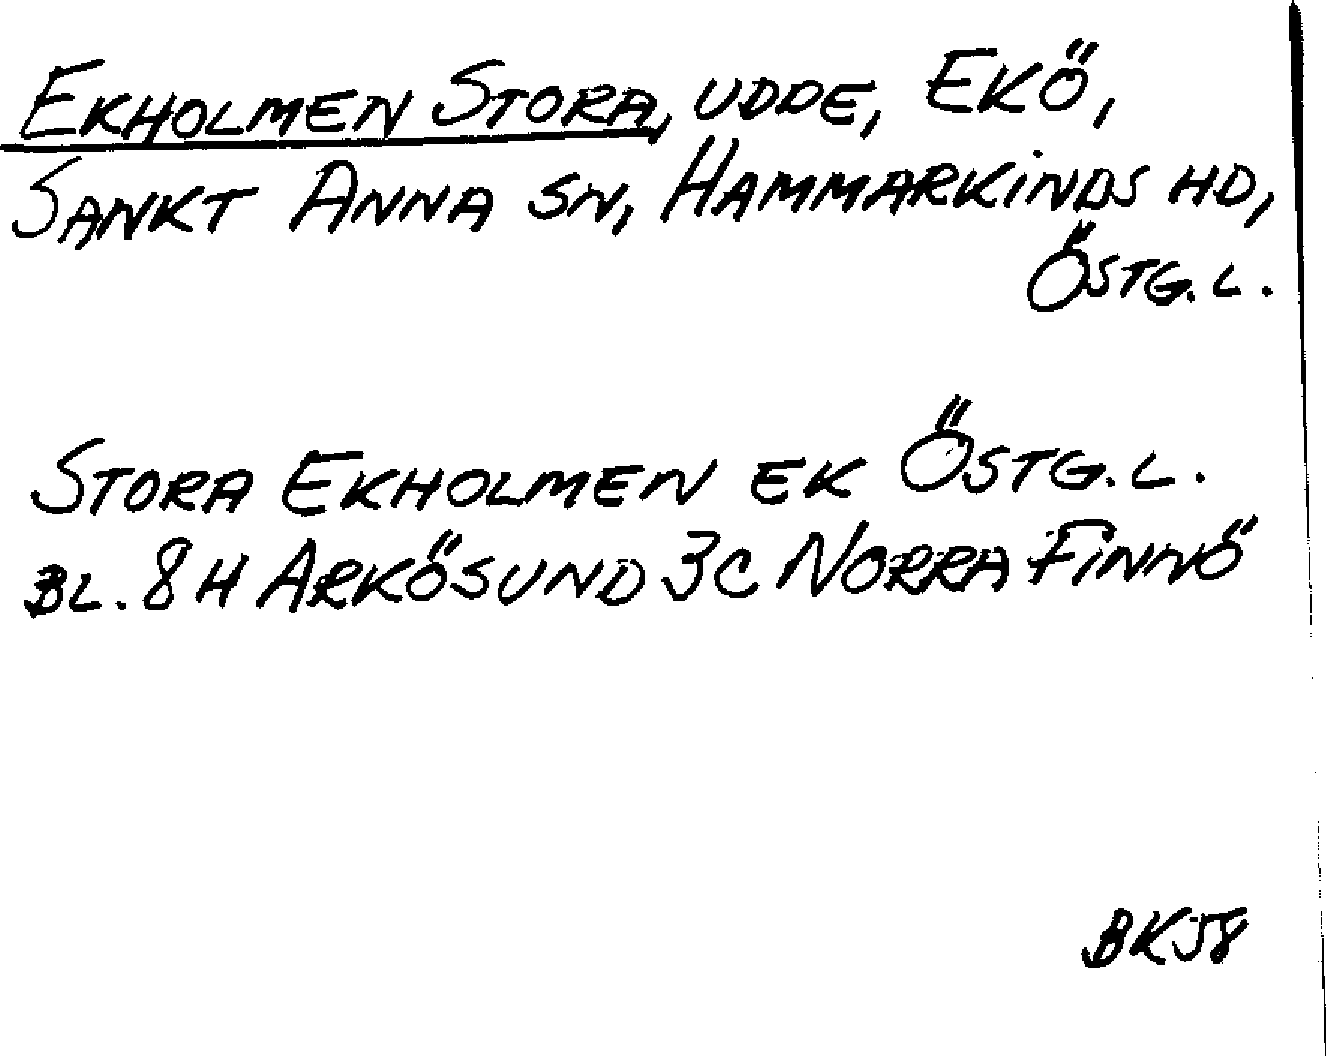 EKHOLMEN STORA, UDDE, EKÖ,
SANKT ANNA SN, HAMMARKINDS HD,
ÖSTG. L.
STORA EKHOLMEN EK ÖSTG. L.
BL. 8H ARKÖSUND 3C NORRA FINNÖ
BK58